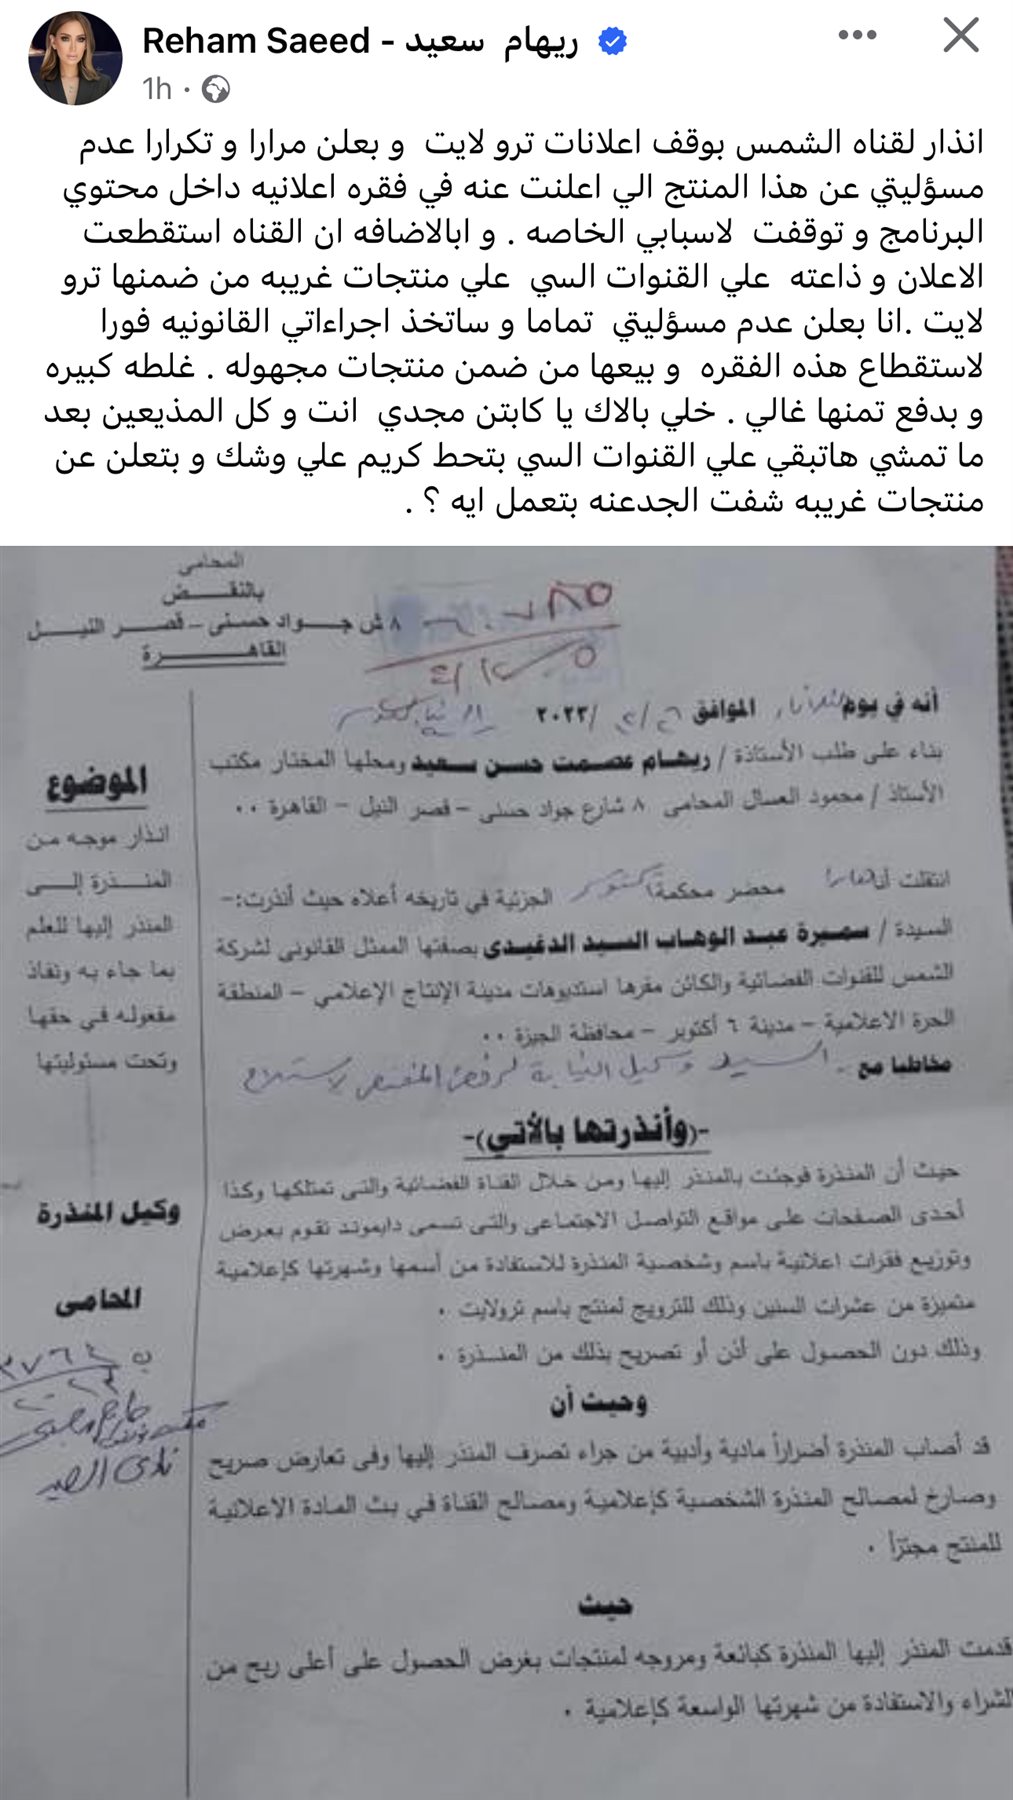 Reham Saeed - ريهام سعيد
1h
انذار لقناه الشمس بوقف اعلانات ترو لايت و بعلن مرارا و تكرارا عدم
مسؤليتي عن هذا المنتج الي اعلنت عنه في فقره اعلانيه داخل محتوي
البرنامج و توقفت لاسبابي الخاصه . و ابالاضافه ان القناه استقطعت
الاعلان و ذاعته علي القنوات السي علي منتجات غريبه من ضمنها ترو
لايت .انا بعلن عدم مسؤليتي تماما و ساتخذ اجراءاتي القانونيه فورا
لاستقطاع هذه الفقره و بيعها من ضمن منتجات مجهوله . غلطه كبيره
و بدفع تمنها غالي . خلي بالاك يا كابتن مجدي انت و كل المذيعين بعد
ما تمشي هاتبقي علي القنوات السي بتحط كريم علي وشك و بتعلن عن
منتجات غريبه شفت الجدعنه بتعمل ايه ؟ .
المحامى
بالنقــــض
٨ ش جــواد حسنى - قصـر النيـــل
القاهـــــــرة
أنه في يوم الموافق / / ٢٠٢٣
بناء على طلب الأستاذة / ريهام عصمت حسن سعيد ومحلها المختار مكتب
الأستاذ / محمود العسال المحامى ٨ شارع جواد حسنى - قصر النيل - القاهرة ٠٠
انتقلت أنا محضر محكمة أكتوبر الجزئية في تاريخه أعلاه حيث أنذرت:-
السيدة / سميرة عبد الوهاب السيد الدغيدى بصفتها الممثل القانونى لشركة
الشمس للقنوات الفضائية والكائن مقرها استديوهات مدينة الإنتاج الإعلامي - المنطقة
الحرة الاعلامية - مدينة ٦ أكتوبر - محافظة الجيزة ٠٠
مخاطبا مع - السيد وكيل النيابة لرفض المختص لاستلام
-(وأنذرتها بالأتي)-
حيث أن المنذرة فوجئت بالمنذر إليها ومن خلال القناة الفضائية والتى تمتلكها وكذا
أحدى الصفحات على مواقع التواصل الاجتماعى والتى تسمى دايموند تقوم بعرض
وتوزيع فقرات اعلانية باسم وشخصية المنذرة للاستفادة من أسمها وشهرتها كإعلامية
متميزة من عشرات السنين وذلك للترويج لمنتج باسم ترولايت ٠
وذلك دون الحصول على أذن أو تصريح بذلك من المنــذرة ٠
وحيث أن
قد أصاب المنذرة أضراراً مادية وأدبية من جراء تصرف المنذر إليها وفى تعارض صريح
وصارخ لمصالح المنذرة الشخصية كإعلامية ومصالح القناة في بث المادة الاعلانية
للمنتج مجتزأ ٠
حيث
قدمت المنذر إليها المنذرة كبائعة ومروجه لمنتجات بغرض الحصول على أعلى ربح من
الشراء والاستفادة من شهرتها الواسعة كإعلامية ٠
الموضوع
انذار موجه من
المنــــذرة إلــــى
المنذر إليها للعلم
بما جاء به ونفاذ
مفعوله في حقها
وتحت مسئوليتها
وكيل المنذرة
المحامى
نادى الصيد